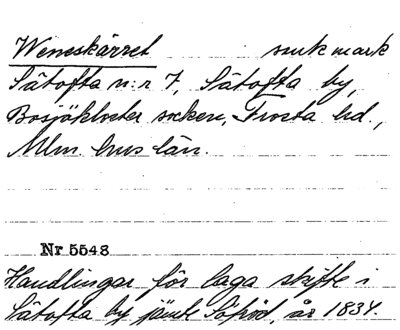 Weneskärret sankmark
Sätofta n:r 7, Sätofta by,
Bosjökloster socken, Frosta hd.,
Mlm. hus län.
Nr 5548
Handlingar för laga skifte i
Sätofta by jämte Säfröd, år 1834.